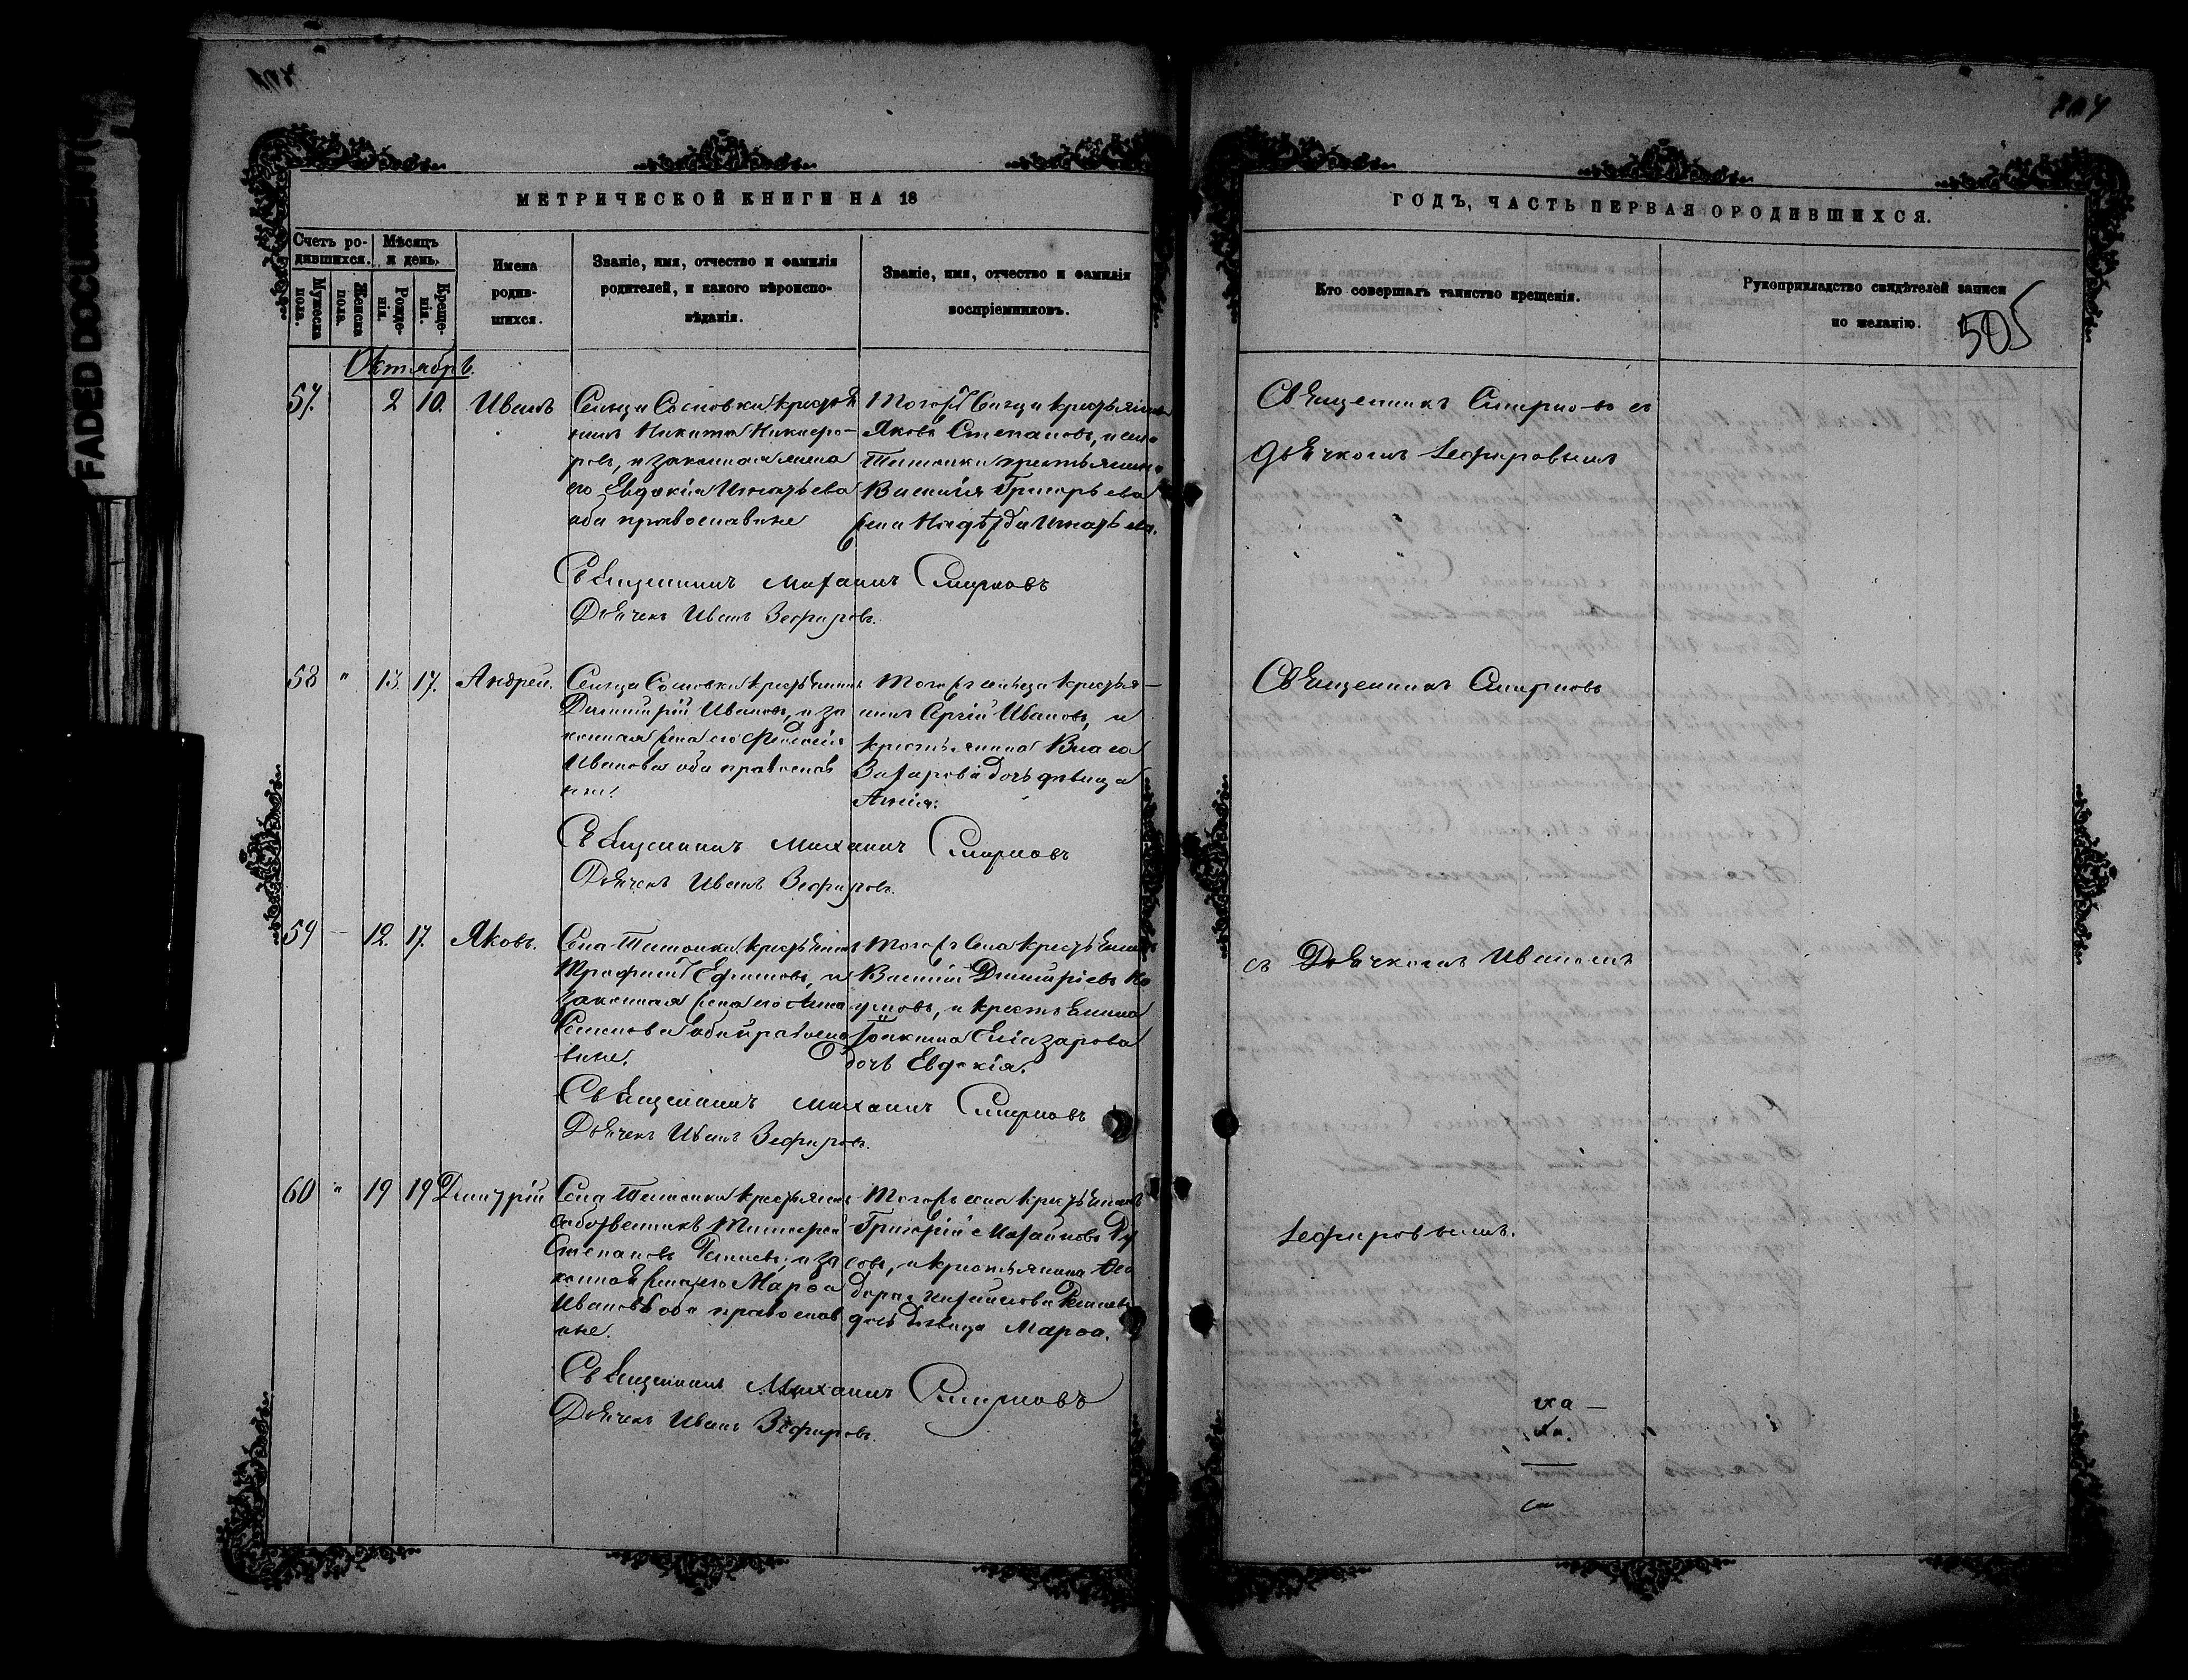 FADED DOCUMENT(
МЕТРИЧЕСКОЙ КНИГИ НА 18
Счетъ родившихся.
Мѣсяцъ и день.
Мужеска пола.
Женска пола.
Рожденія.
Крещенія.
Имена родившихся.
Званіе, имя, отчество и фамилія родителей, и какого вѣроисповѣданія.
Званіе, имя, отчество и фамилія воспріемниковъ.
Октябрь.
57. 2 10. Иванъ
Сельца Сосновки крестья
нинъ Никита Никифо-
ровъ, и законная жена
его Евдокія Игнатьева
оба православные
Того/жъ Сельца крестьянинъ
Яковъ Степановъ, и села
крестьянина
Василія Григорьева
жена Надежда Игнатьева.
Священникъ Михаилъ Смирновъ
Дьячекъ Иванъ Зефировъ.
58 " 13. 17. Андрей.
Сельца Сосновки крестьянинъ
Димитрій Ивановъ, и за
конная жена его Феодосія
Иванова оба православ
ные.
Того жъ сельца крестья-
нинъ Сергій Ивановъ, и
крестьянина Власа
Захарова дочь девица
Анна.
Священникъ Михаилъ Смирновъ
Дьячекъ Иванъ Зефировъ.
59 — 12. 17. Яковъ.
Села крестьянинъ
Трофимъ Ефимовъ, и
законная жена его Анна
Семенова оба правосла-
вные.
Того жъ Села крестьянинъ
Василій Димитріевъ
и крестьянина
Елеазарова
дочь Евдокія.
Священникъ Михаилъ Смирновъ
Дьячекъ Иванъ Зефировъ.
60 " 19 19 Димитрій
Села крестьянинъ
собственникъ Тимофей
Степановъ и за
конная жена его Марѳа
Иванова оба православ
ные.
Того жъ села крестьянинъ
Григорій Михайловъ
и крестьянина Ѳео
дора Михайлова
дочь девица Марѳа.
Священникъ Михаилъ Смирновъ
Дьячекъ Иванъ Зефировъ.
ГОДЪ, ЧАСТЬ ПЕРВАЯ О РОДИВШИХСЯ.
Кто совершалъ таинство крещенія.
Рукоприкладство свидѣтелей записи по желанію.
505
Священникъ Смирновъ съ
дьячкомъ Зефировымъ
Священникъ Смирновъ
съ Дьячкомъ Иваномъ
Зефировымъ.